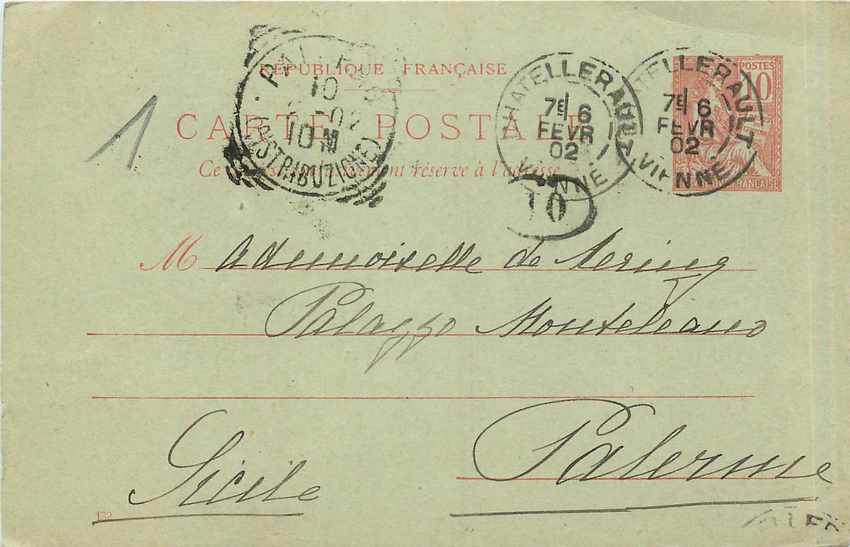 RÉPUBLIQUE FRANÇAISE
CARTE POSTALE
Ce côté est exclusivement réservé à l'adresse
POSTES
10
FRANÇAISE
CHATELLERAULT
7E 6
FEVR
02
VIENNE
CHATELLERAULT
7E 6
FEVR
02
VIENNE
PALERMO
10
02
10M
(DISTRIBUZIONE)
10
1
Mademoiselle de
Palazzo Monteleano
Palerme
Sicile